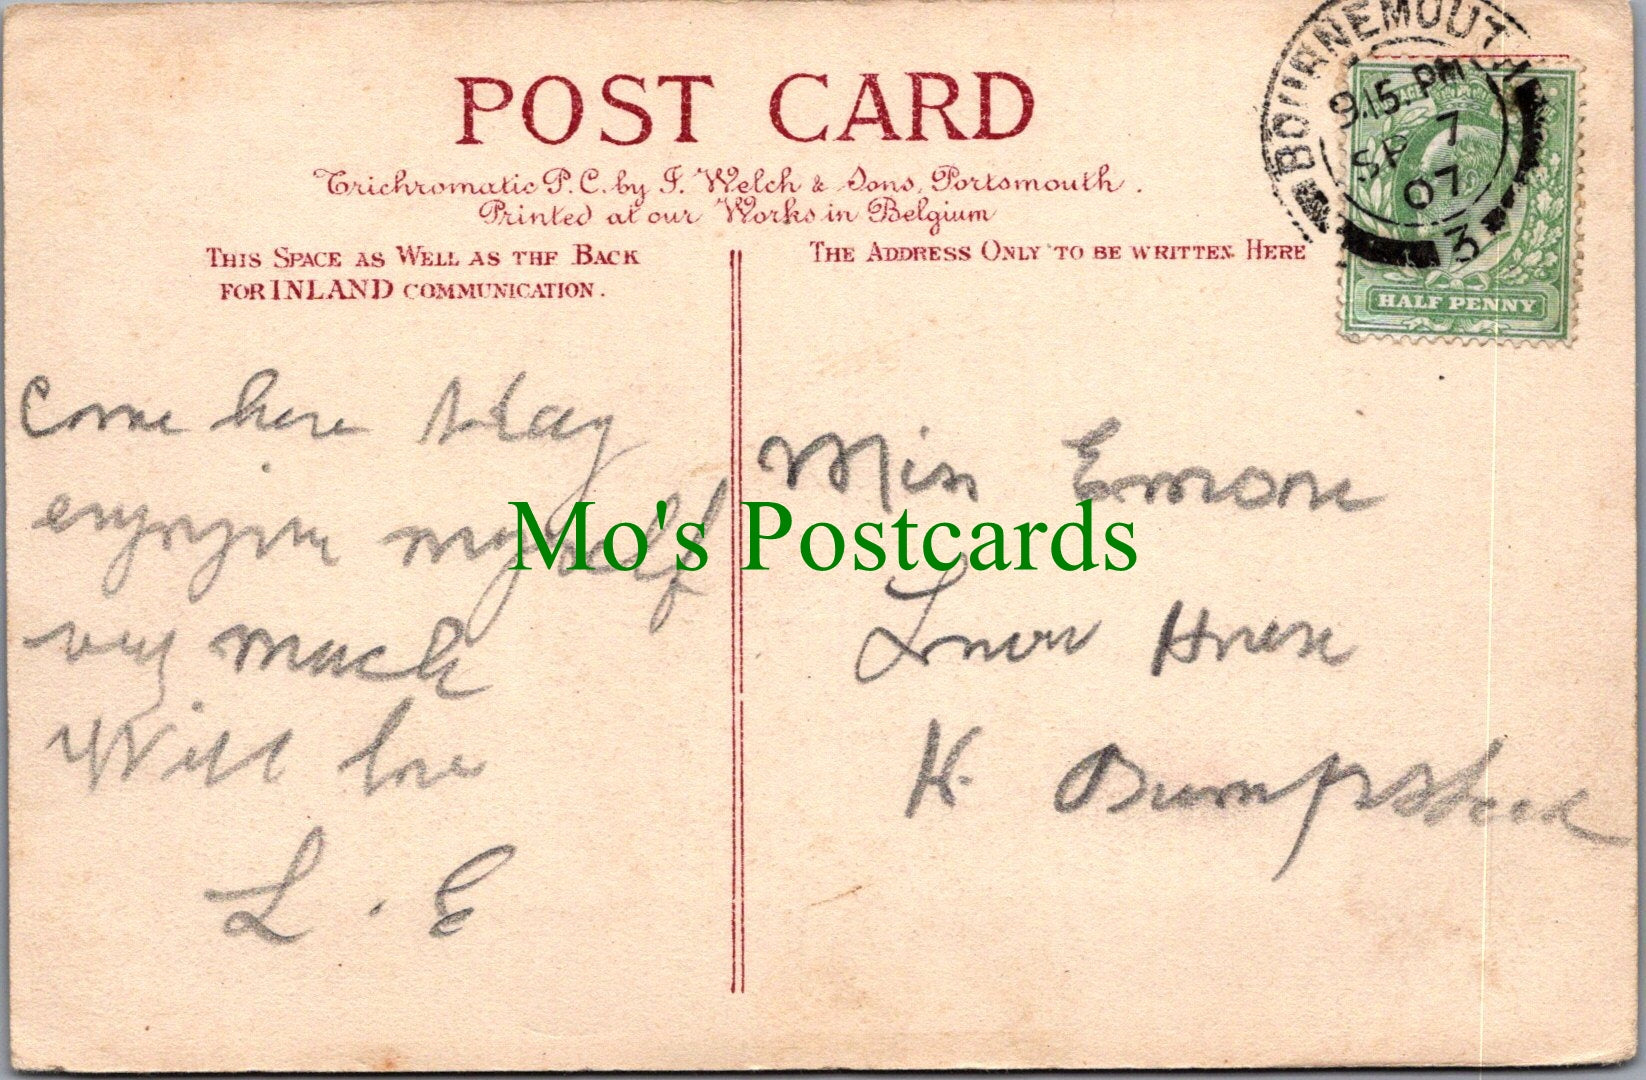 POST CARD
Trichromatic P.C. by J. Welch & Sons, Portsmouth.
Printed at our Works in Belgium
THIS SPACE AS WELL AS THE BACK
FOR INLAND COMMUNICATION.
THE ADDRESS ONLY TO BE WRITTEN HERE
BOURNEMOUTH
9.15. PM
SP 7
07
3
HALF PENNY
Come here today
enjoying myself
very much
With love
L. E
Miss
House
H. Bumpstead
Mo's Postcards